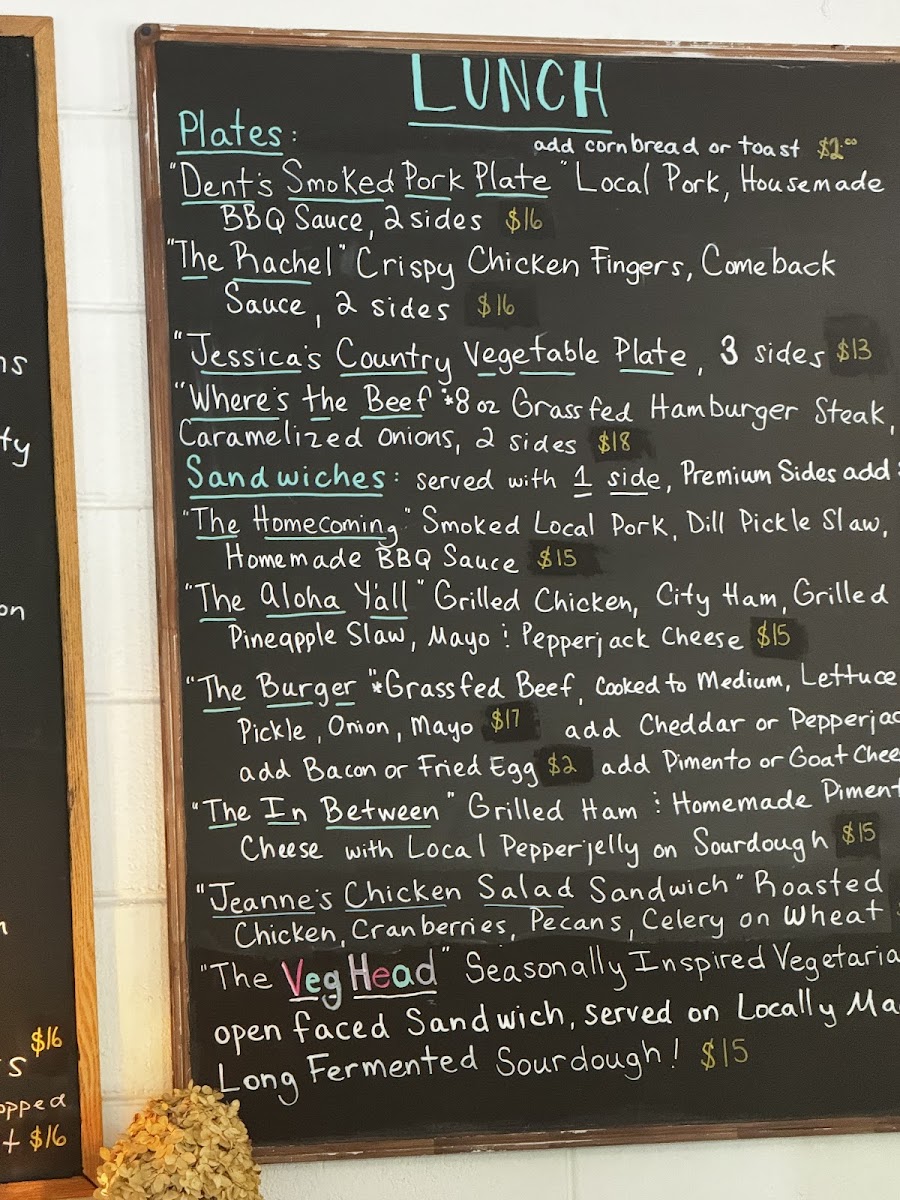 LUNCH
Plates:
add cornbread or toast $2.00
"Dent's Smoked Pork Plate" Local Pork, Housemade
BBQ Sauce, 2 sides $16
"The Rachel" Crispy Chicken Fingers, Comeback
Sauce, 2 sides $16
"Jessica's Country Vegetable Plate, 3 sides $13
"Where's the Beef" *8oz Grassfed Hamburger Steak,
Caramelized Onions, 2 sides $18
Sandwiches: served with 1 side, Premium Sides add
"The Homecoming" Smoked Local Pork, Dill Pickle Slaw,
Homemade BBQ Sauce $15
"The Aloha Y'all" Grilled Chicken, City Ham, Grilled
Pineapple Slaw, Mayo : Pepperjack Cheese $15
"The Burger "*Grassfed Beef, Cooked to Medium, Lettuce
Pickle, Onion, Mayo $17 add Cheddar or Pepperjac
add Bacon or Fried Egg $2 add Pimento or Goat Chee
"The In Between" Grilled Ham : Homemade Piment
Cheese with Local Pepperjelly on Sourdough $15
"Jeanne's Chicken Salad Sandwich" Roasted
Chicken, Cranberries, Pecans, Celery on Wheat
"The Veg Head" Seasonally Inspired Vegetaria
open faced Sandwich, served on Locally Ma
Long Fermented Sourdough! $15
ns
ty
on
$16
s
opped
t $16